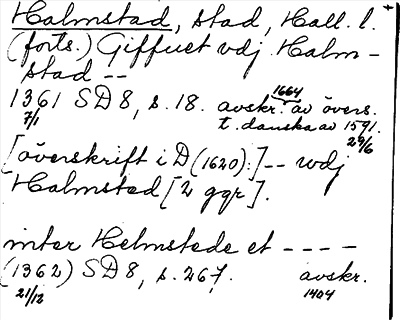 Halmstad, stad, Hall. l.
(forts.) Giffuet vdj Halm-
stad --
1361 SD 8, s. 18. avskr. 1664 av övers.
7/1 t. danska av 1591.
29/6
[överskrift i D (1620):] -- wdj
Halmsted [2 ggr].
inter Helmstede et ----
(1362) SD 8, s. 267, avskr.
21/12 1404